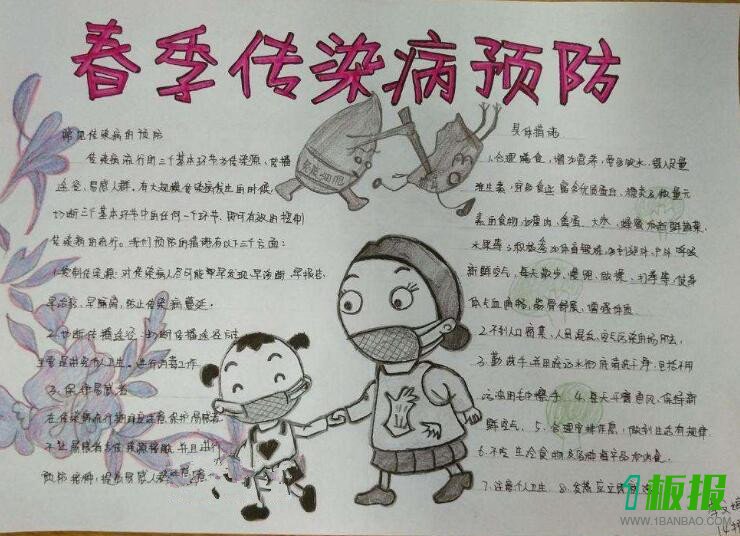 春季传染病预防
常见传染病的预防
传染病流行的三个基本环节为传染源、传播
途径、易感人群。在大规模传染病发生的时候,
切断三个基本环节中的任何一个环节,即可有效的控制
传染病的流行。我们预防的措施有以下三个方面:
1、控制传染源:对传染病人尽可能早发现、早诊断、早报告、
早治疗、早隔离,防止传染病蔓延。
2、切断传播途径:切断传播途径
主要是讲究个人卫生。进行消毒工作。
3、保护易感者
在传染病流行期间应注意保护易感者
不让易感者与传染源接触,并且进行
预防接种,提高易感人群
免疫细胞
具体措施
1、合理膳食,增加营养,要多饮水,摄入足量
维生素,宜多食些富含优质蛋白、糖类及微量元
素的食物,如瘦肉、禽蛋、大枣、蜂蜜和新鲜蔬菜、
水果等;积极参加体育锻炼,多到郊外、户外呼吸
新鲜空气,每天散步、慢跑、做操、打拳等,使身
体气血畅,筋骨舒展,增强体质
2、不到人口密集,人员混乱,空气污染的场所去,
3、勤洗手,并用流动水彻底清洗干净,包括不用
污浊的毛巾擦手 4、每天开窗通风,保持新
鲜空气、5、合理安排作息,做到生活有规律
6、不吃生冷食物
7、注意个人卫生、8、发热
1板报
WWW.1BANBAO.COM